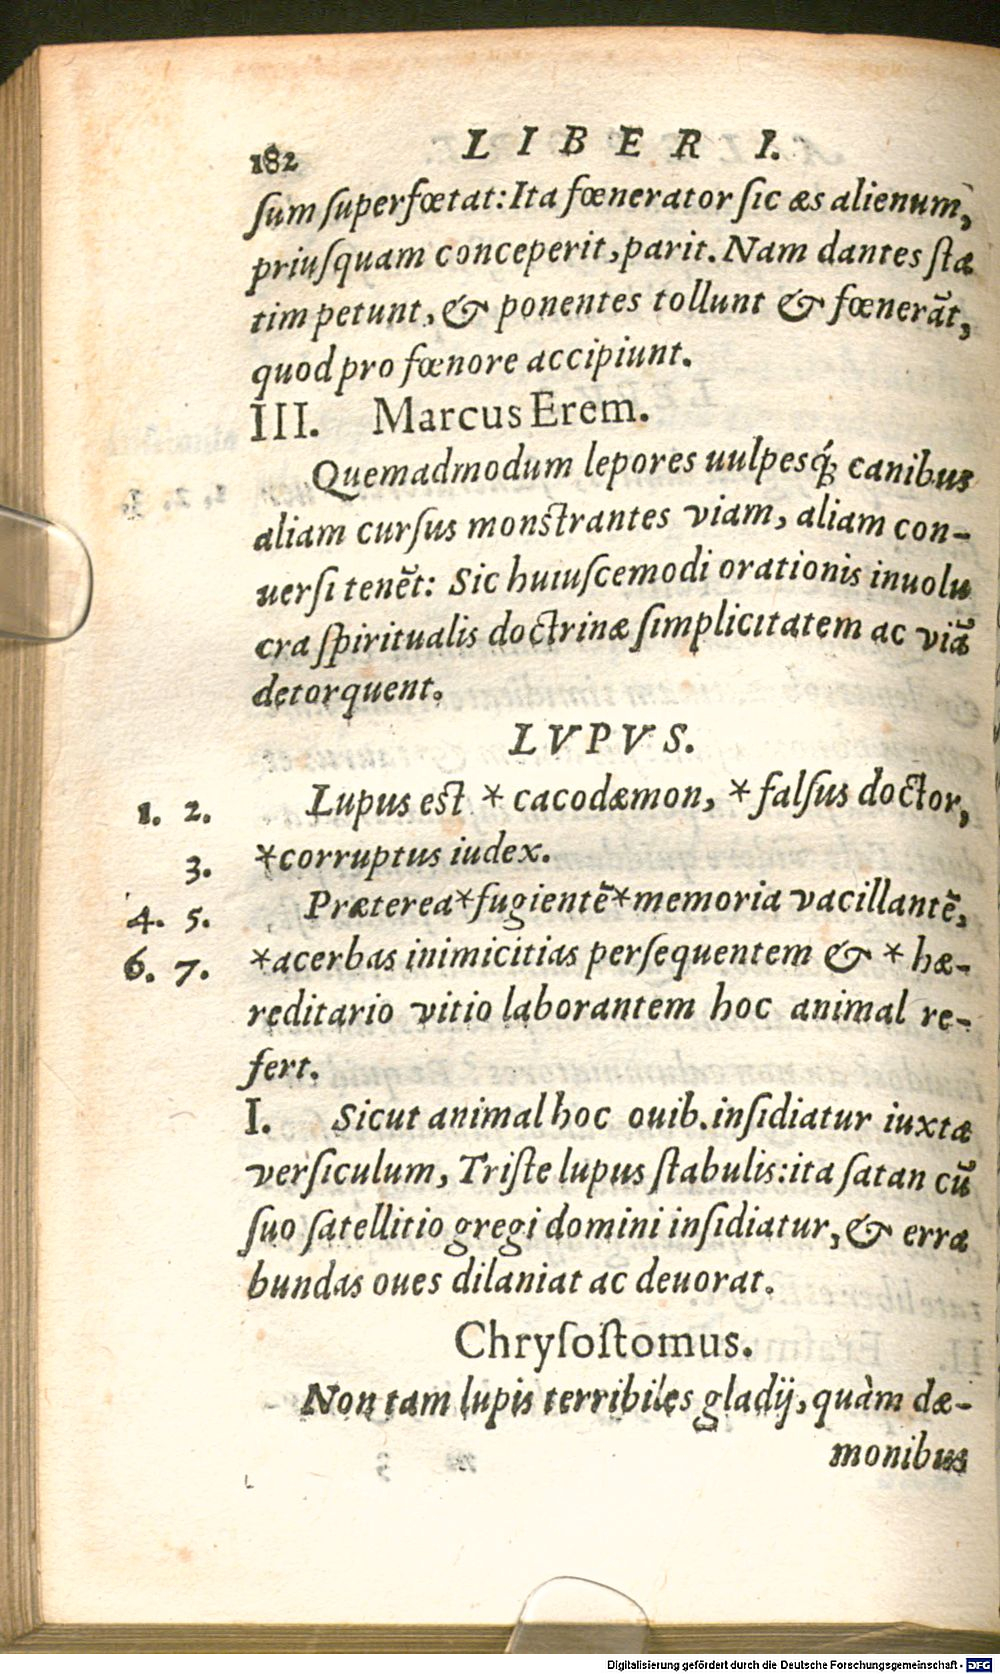 182 LIBERI I.
ſum ſuperfœtat: Ita fœnerator ſic æs alienum,
priuſquam conceperit, parit. Nam dantes ſta
tim petunt, & ponentes tollunt & fœnerãt,
quod pro fœnore accipiunt.
III. Marcus Erem.
Quemadmodum lepores uulpesq́; canibus
aliam curſus monſtrantes viam, aliam con-
uerſi tenẽt: Sic huiuſcemodi orationis inuolu
cra ſpiritualis doctrinæ ſimplicitatem ac viã
detorquent.
LVPVS.
1. 2. Lupus eſt * cacodæmon, * falſus doctor,
3. *corruptus iudex.
Præterea*fugientẽ*memoria vacillantẽ,
4. 5.
6. 7. *acerbas inimicitias perſequentem & * hæ-
reditario vitio laborantem hoc animal re-
fert.
I. Sicut animal hoc ouib. inſidiatur iuxta
verſiculum, Triſte lupus ſtabulis: ita ſatan cũ
ſuo ſatellitio gregi domini inſidiatur, & erra
bundas oues dilaniat ac deuorat.
Chryſoſtomus.
Non tam lupis terribiles gladij, quàm dæ-
monibus
Digitalisierung gefördert durch die Deutsche Forschungsgemeinschaft - DFG